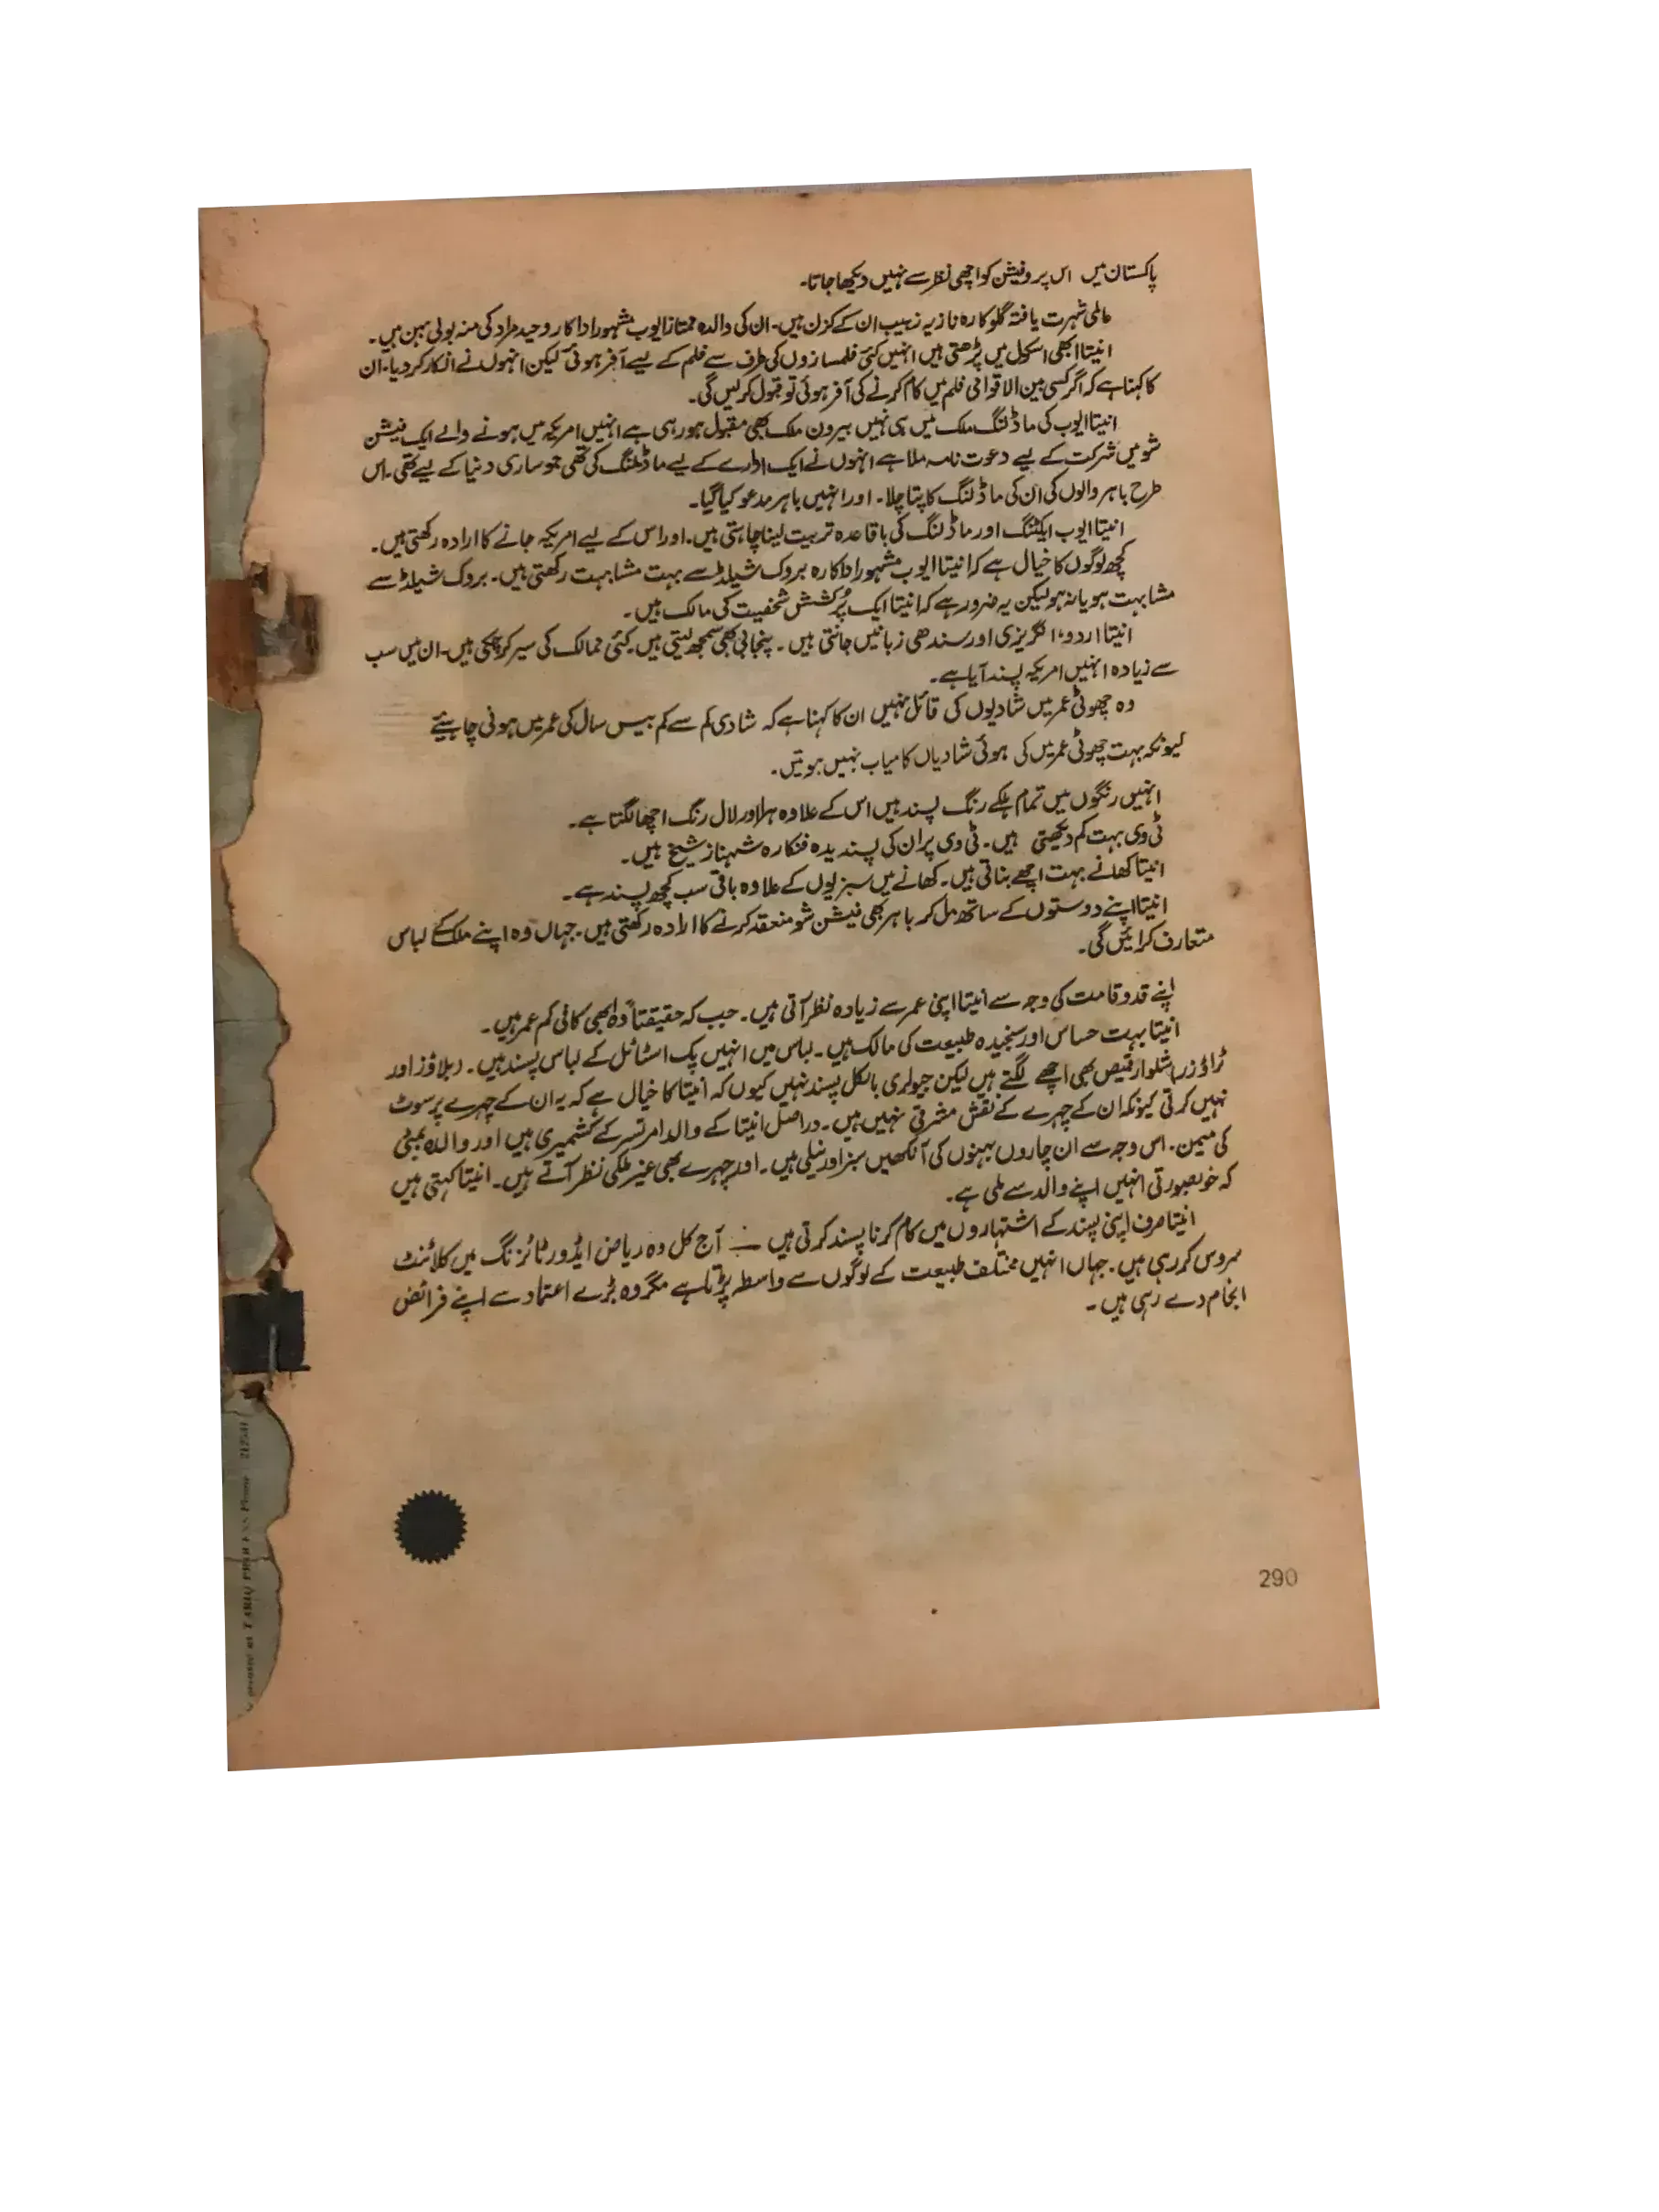 پاکستان میں اس پروفیشن کو اچھی نظر سے نہیں دیکھا جاتا۔
عالمی شہرت یافتہ گلوکارہ نازیہ زہیب ان کے کزن ہیں۔ ان کی والدہ ممتاز ایوب مشہور اداکار وحید مراد کی منہ بولی بہن ہیں۔
انیتا ابھی اسکول میں پڑھتی ہیں انہیں کئی فلمسازوں کی طرف سے فلم کے لیے آفر ہوئی لیکن انہوں نے انکار کر دیا۔ ان
کا کہنا ہے کہ اگر کسی بین الاقوامی فلم میں کام کرنے کی آفر ہوئی تو قبول کر لیں گی۔
انیتا ایوب کی ماڈلنگ ملک میں ہی نہیں بیرون ملک بھی مقبول ہو رہی ہے انہیں امریکہ میں ہونے والے ایک فیشن
شو میں شرکت کے لیے دعوت نامہ ملا ہے انہوں نے ایک ادارے کے لیے ماڈلنگ کی تھی جو ساری دنیا کے لیے تھی۔ اس
طرح باہر والوں کی ان کی ماڈلنگ کا پتا چلا۔ اور انہیں باہر مدعو کیا گیا۔
انیتا ایوب ایکٹنگ اور ماڈلنگ کی باقاعدہ تربیت لینا چاہتی ہیں۔ اور اس کے لیے امریکہ جانے کا ارادہ رکھتی ہیں۔
کچھ لوگوں کا خیال ہے کہ انیتا ایوب مشہور اداکارہ بروک شیلڈ سے بہت مشابہت رکھتی ہیں۔ بروک شیلڈ سے
مشابہت ہو یا نہ ہو لیکن یہ ضرور ہے کہ انیتا ایک پُرکشش شخصیت کی مالک ہیں۔
انیتا اردو، انگریزی اور سندھی زبانیں جانتی ہیں۔ پنجابی بھی سمجھ لیتی ہیں۔ کئی ممالک کی سیر کر چکی ہیں۔ ان میں سب
سے زیادہ انہیں امریکہ پسند آیا ہے۔
وہ چھوٹی عمر میں شادیوں کی قائل نہیں ان کا کہنا ہے کہ شادی کم سے کم بیس سال کی عمر میں ہونی چاہیئے
کیونکہ بہت چھوٹی عمر میں کی ہوئی شادیاں کامیاب نہیں ہوتیں۔
انہیں رنگوں میں تمام ہلکے رنگ پسند ہیں اس کے علاوہ ہرا اور لال رنگ اچھا لگتا ہے۔
ٹی وی بہت کم دیکھتی ہیں۔ ٹی وی پر ان کی پسندیدہ فنکارہ شہناز شیخ ہیں۔
انیتا کھانے بہت اچھے بناتی ہیں۔ کھانے میں سبزیوں کے علاوہ باقی سب کچھ پسند ہے۔
انیتا اپنے دوستوں کے ساتھ مل کر باہر بھی فیشن شو منعقد کرنے کا ارادہ رکھتی ہیں۔ جہاں وہ اپنے ملک کے لباس
متعارف کرائیں گی۔
اپنے قد و قامت کی وجہ سے انیتا اپنی عمر سے زیادہ نظر آتی ہیں۔ جب کہ حقیقتاً وہ ابھی کافی کم عمر ہیں۔
انیتا بہت حساس اور سنجیدہ طبیعت کی مالک ہیں۔ لباس میں انہیں پک اسٹائل کے لباس پسند ہیں۔ (بلاؤز اور
ٹراؤزر) شلوار قمیص بھی اچھے لگتے ہیں لیکن جیولری بالکل پسند نہیں کیوں کہ انیتا کا خیال ہے کہ یہ ان کے چہرے پر سوٹ
نہیں کرتی کیونکہ ان کے چہرے کے نقش مشرقی نہیں ہیں۔ دراصل انیتا کے والد امرتسر کے کشمیری ہیں اور والدہ بمبئی
کی میمن۔ اس وجہ سے ان چاروں بہنوں کی آنکھیں سبز اور نیلی ہیں۔ اور چہرے بھی غیر ملکی نظر آتے ہیں۔ انیتا کہتی ہیں
کہ خوبصورتی انہیں اپنے والد سے ملی ہے۔
انیتا صرف اپنی پسند کے اشتہاروں میں کام کرنا پسند کرتی ہیں — آج کل وہ ریاض ایڈورٹائزنگ میں کلائنٹ
سروس کر رہی ہیں۔ جہاں انہیں مختلف طبیعت کے لوگوں سے واسطہ پڑتا ہے مگر وہ بڑے اعتماد سے اپنے فرائض
انجام دے رہی ہیں۔
TARIQ PROCESS Phone : 212541
290